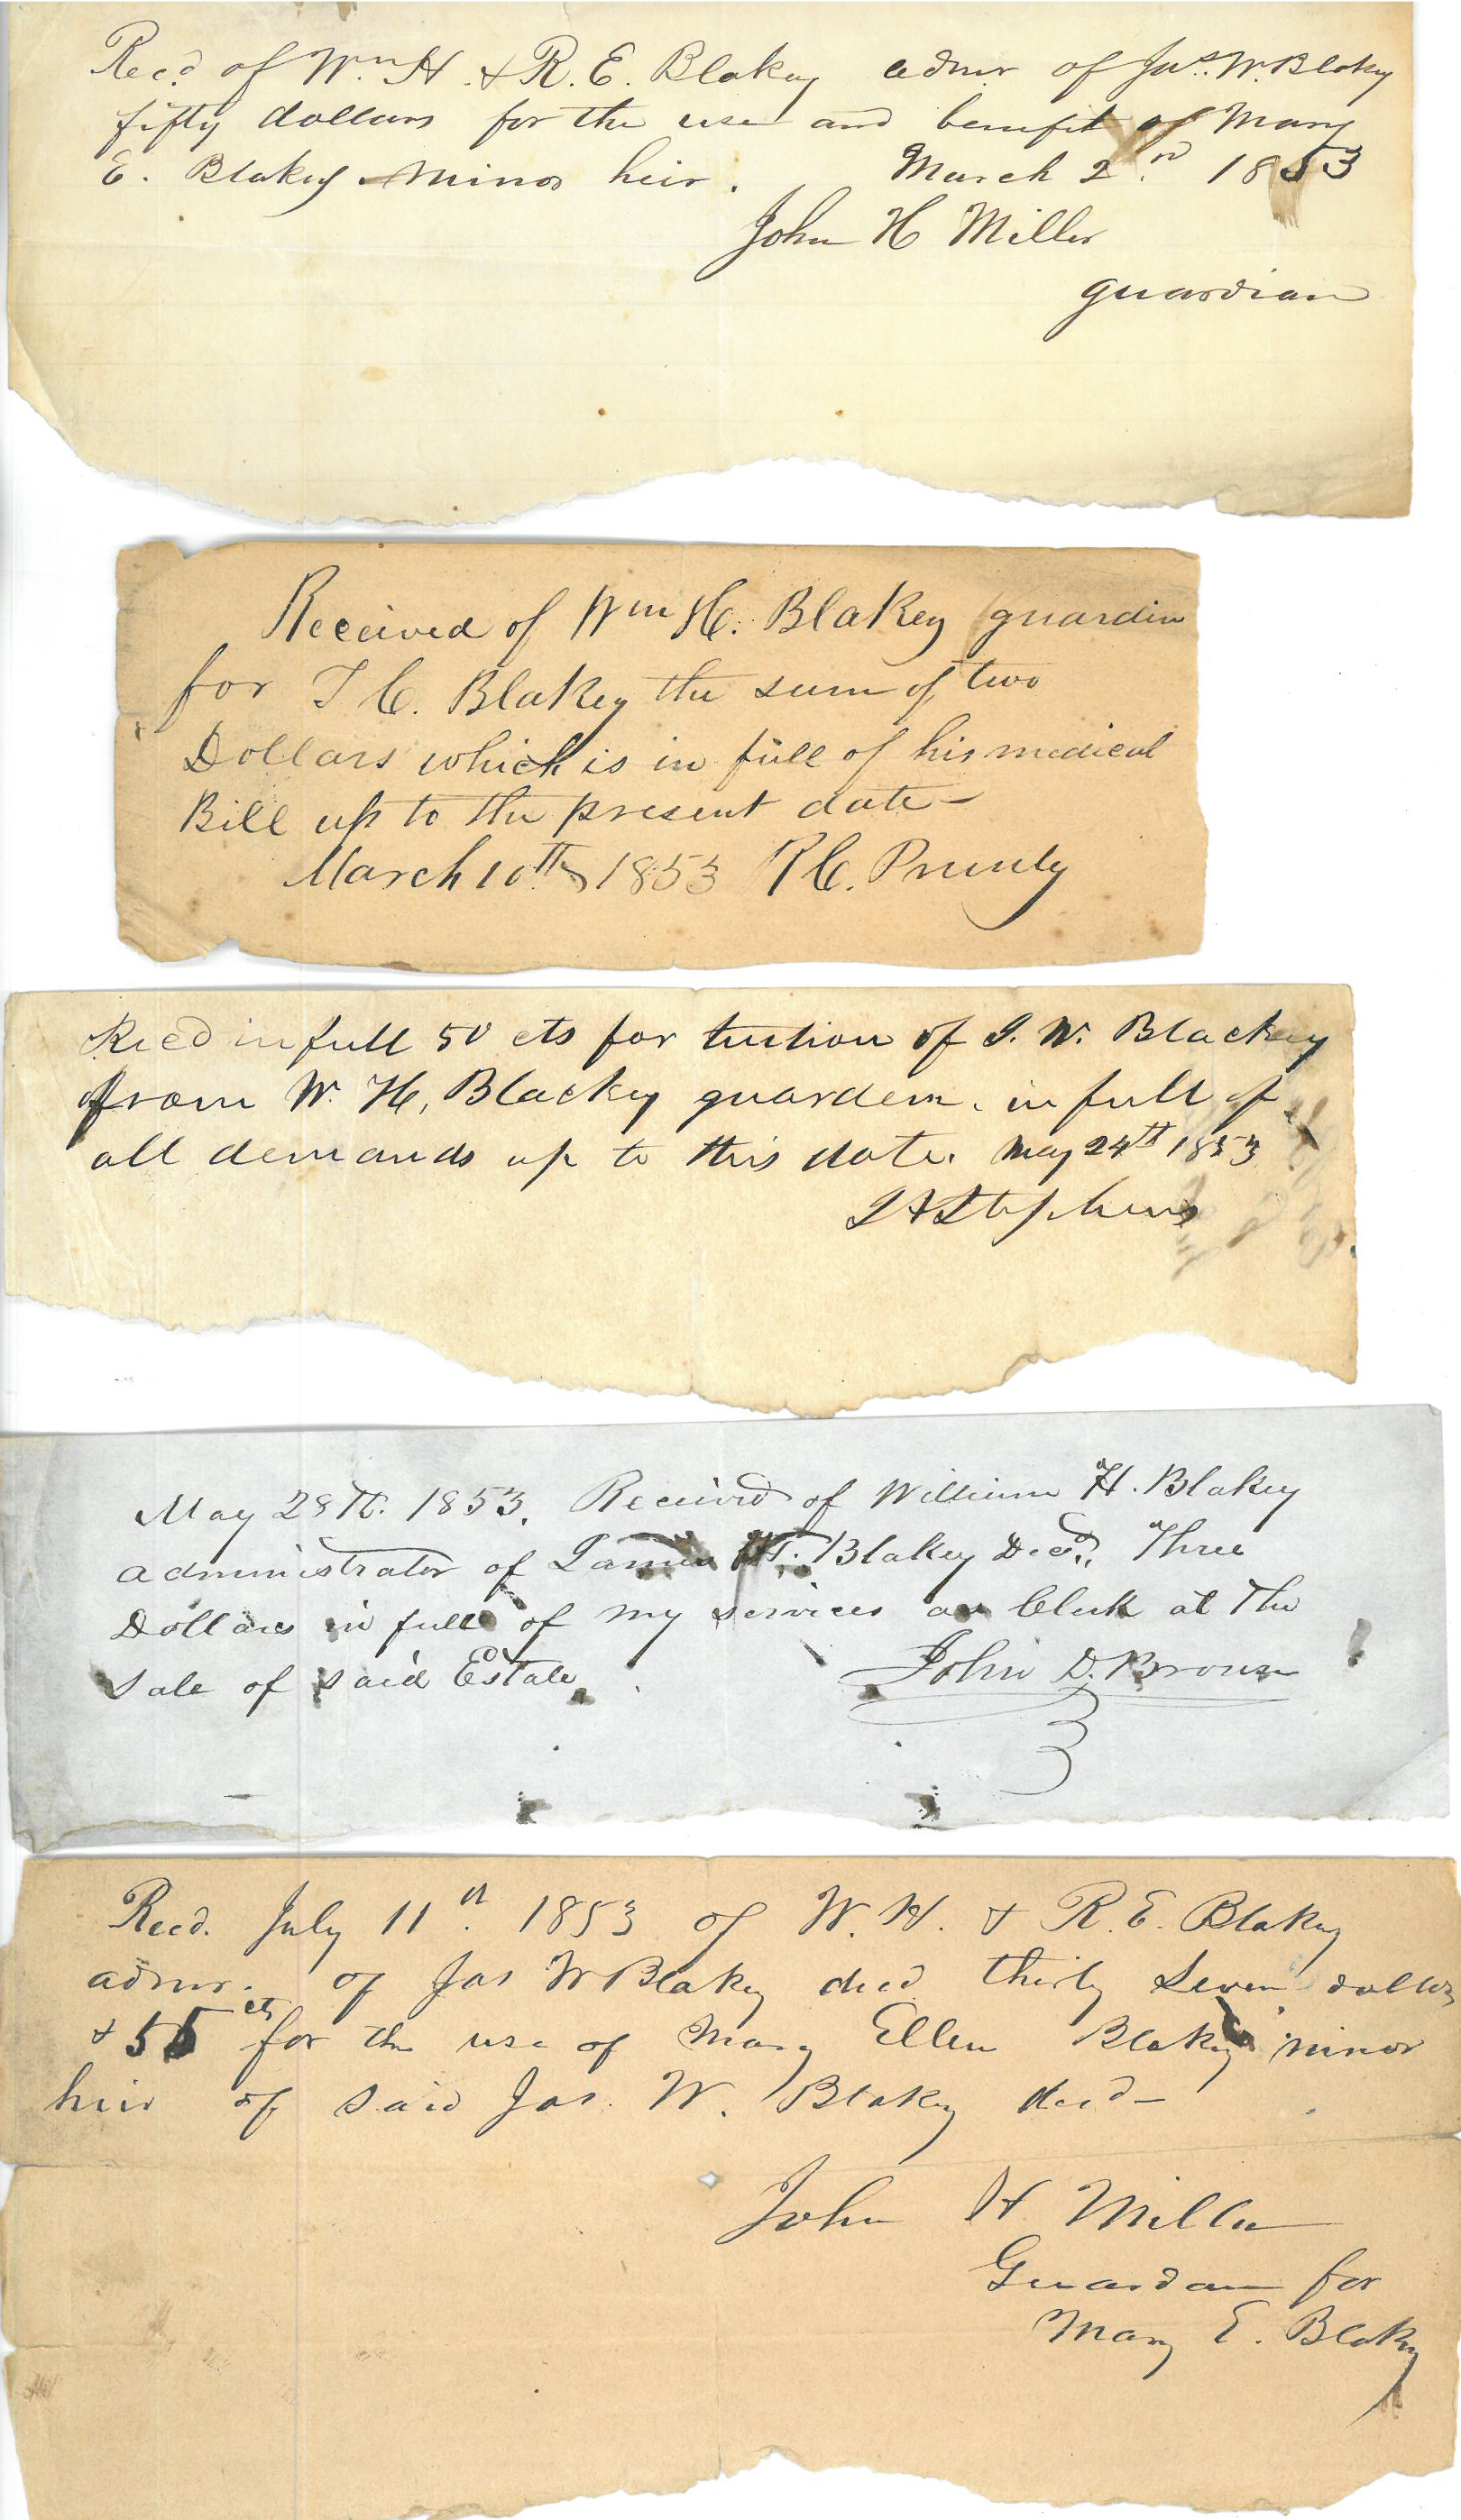 Recd of Wm H. & R. E. Blakey admr of Jas. W. Blakey
fifty dollars for the use and benefit of Mary
E. Blakey minor heir. March 2nd 1853
John H Miller
guardian
Received of Wm H. Blakey guardin
for T C. Blakey the sum of two
Dollars which is in full of his medical
Bill up to the present date -
March 10th 1853 R C. Prunty
Recd in full 50 cts for tution of J. W. Blackey
from W. H. Blackey guardem. in full of
all demands up to this date. May 24th 1853
Stephens
May 28th. 1853. Received of William H. Blakey
administrator of James W. Blakey Decd., Three
Dollars in full of my services as Clerk at The
sale of said Estate
John D. Brown
Recd. July 11th. 1853 of W. H. & R. E. Blakey
admr. of Jas W Blakey decd thirty seven dollars
& 55 cts for the use of Mary Ellen Blakey minor
heir of said Jas. W. Blakey decd -
John H Miller
Guardan for
Mary E. Blakey